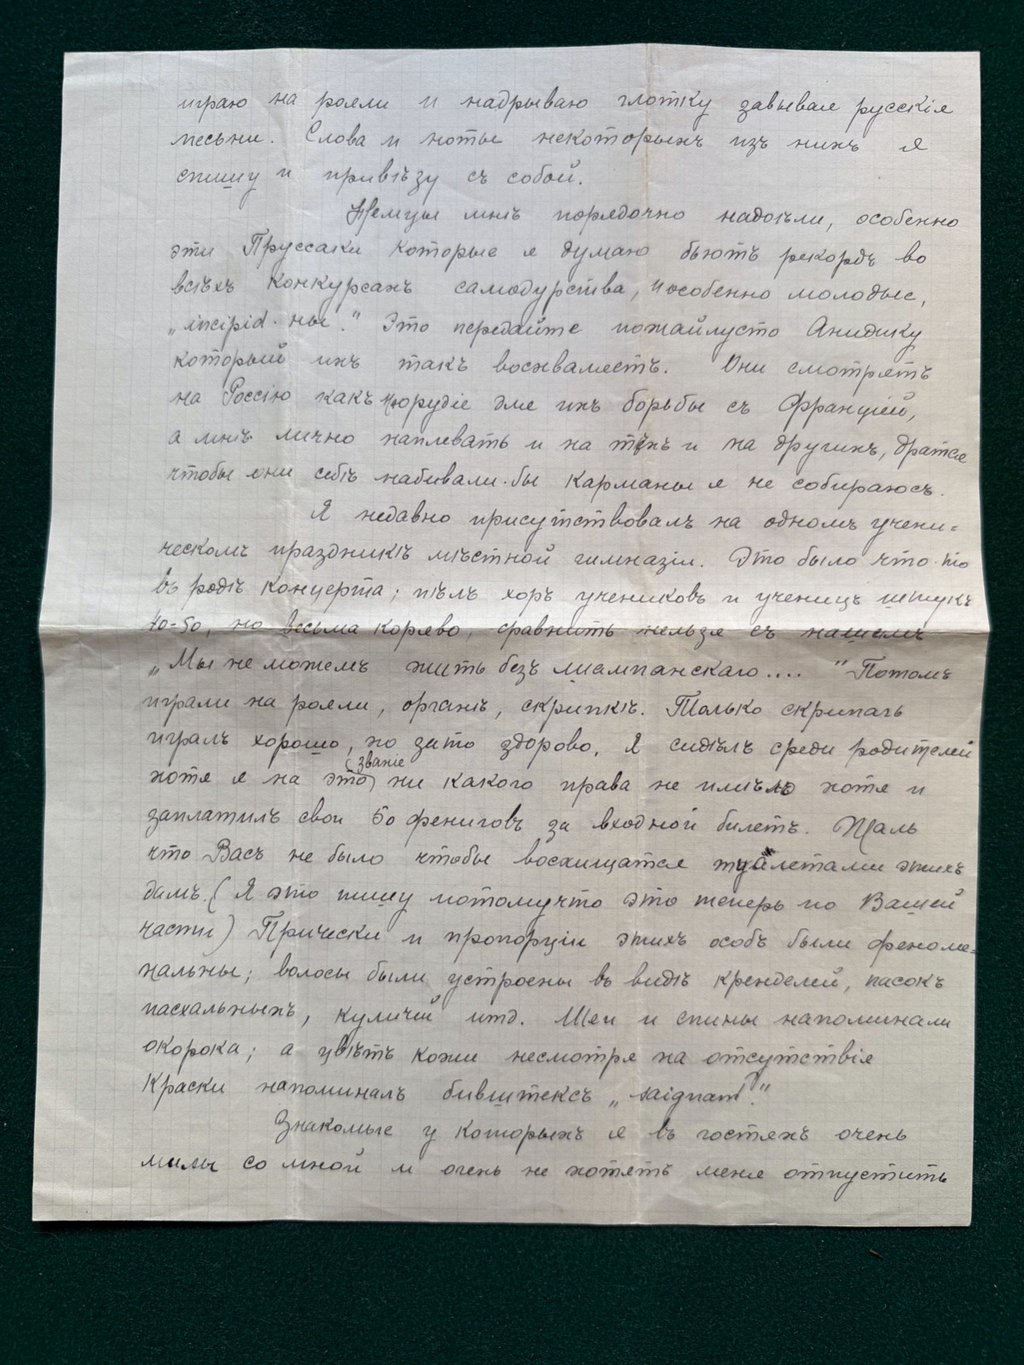 играю на рояли и надрываю глотку завывая русскія
песьни. Слова и ноты некоторыхъ изъ нихъ я
спишу и привѣзу съ собой.
Немцы мнѣ порядочно надоѣли, особенно
эти Пруссаки которые я думаю бьютъ рекордъ во
всѣхъ конкурсахъ самодурства, и особенно молодые,
„incipid-ны." Это передайте пожайлусто
который ихъ такъ восхваляетъ. Они смотрятъ
на Россію какъ орудіе для ихъ борьбы съ Франціей,
а мнѣ лично наплевать и на тѣхъ и на другихъ, дратся
чтобы они себѣ набивали-бы карманы я не собираюсь.
Я недавно присутствовалъ на одномъ учени-
ческомъ праздникѣ мѣстной гимназіи. Это было что-то
въ родѣ концерта; пѣлъ хоръ учениковъ и ученицъ штукъ
40-50, но весьма коряво, сравнить нельзя съ нашемъ
„Мы не можемъ жить безъ шампанскаго.... " Потомъ
играли на рояли, органѣ, скрипкѣ. Только скрипачъ
игралъ хорошо, но зато здорово. Я сидѣлъ среди родителей
хотя я на это (званіе) ни какого права не имѣлъ хотя и
заплатилъ свои 50 фениговъ за входной билетъ. Жаль
что Васъ не было чтобы восхищатся туалетами этихъ
дамъ. (Я это пишу потомучто это теперь по Вашей
части) Прически и пропорціи этихъ особъ были феноме-
нальны; волосы были устроены въ видѣ кренделей, пасокъ
пасхальныхъ, куличей итд. Шеи и спины напоминали
окорока; а цвѣтъ кожи несмотря на отсутствія
краски напоминалъ бивштексъ „saignant."
Знакомые у которыхъ я въ гостяхъ очень
милы со мной и очень не хотятъ меня отпустить